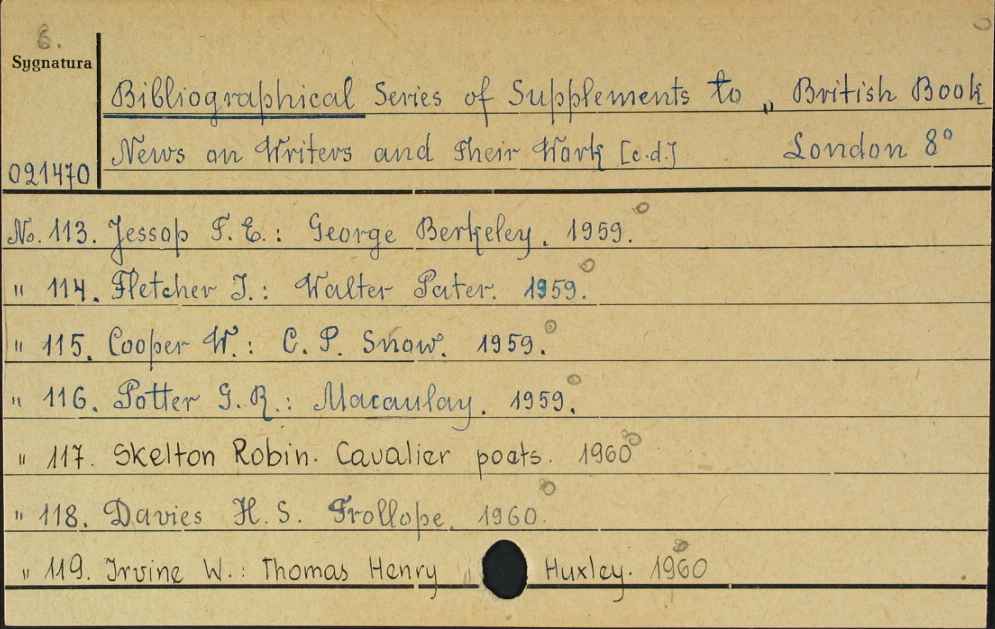 6.
Sygnatura
Bibliographical Series of Supplements to „ British Book
News on Writers and Their Work [c.d.] London 8°
091470
No. 113. Jessop T. E.: George Berkeley. 1959.
" 114. Fletcher I.: Walter Pater. 1959.
" 115. Cooper W.: C. P. Snow. 1959.
" 116. Potter G. R.: Macaulay. 1959.
" 117. Skelton Robin. Cavalier poets. 1960
" 118. Davies H. S. Trollope. 1960.
" 119. Irvine W.: Thomas Henry Huxley. 1960